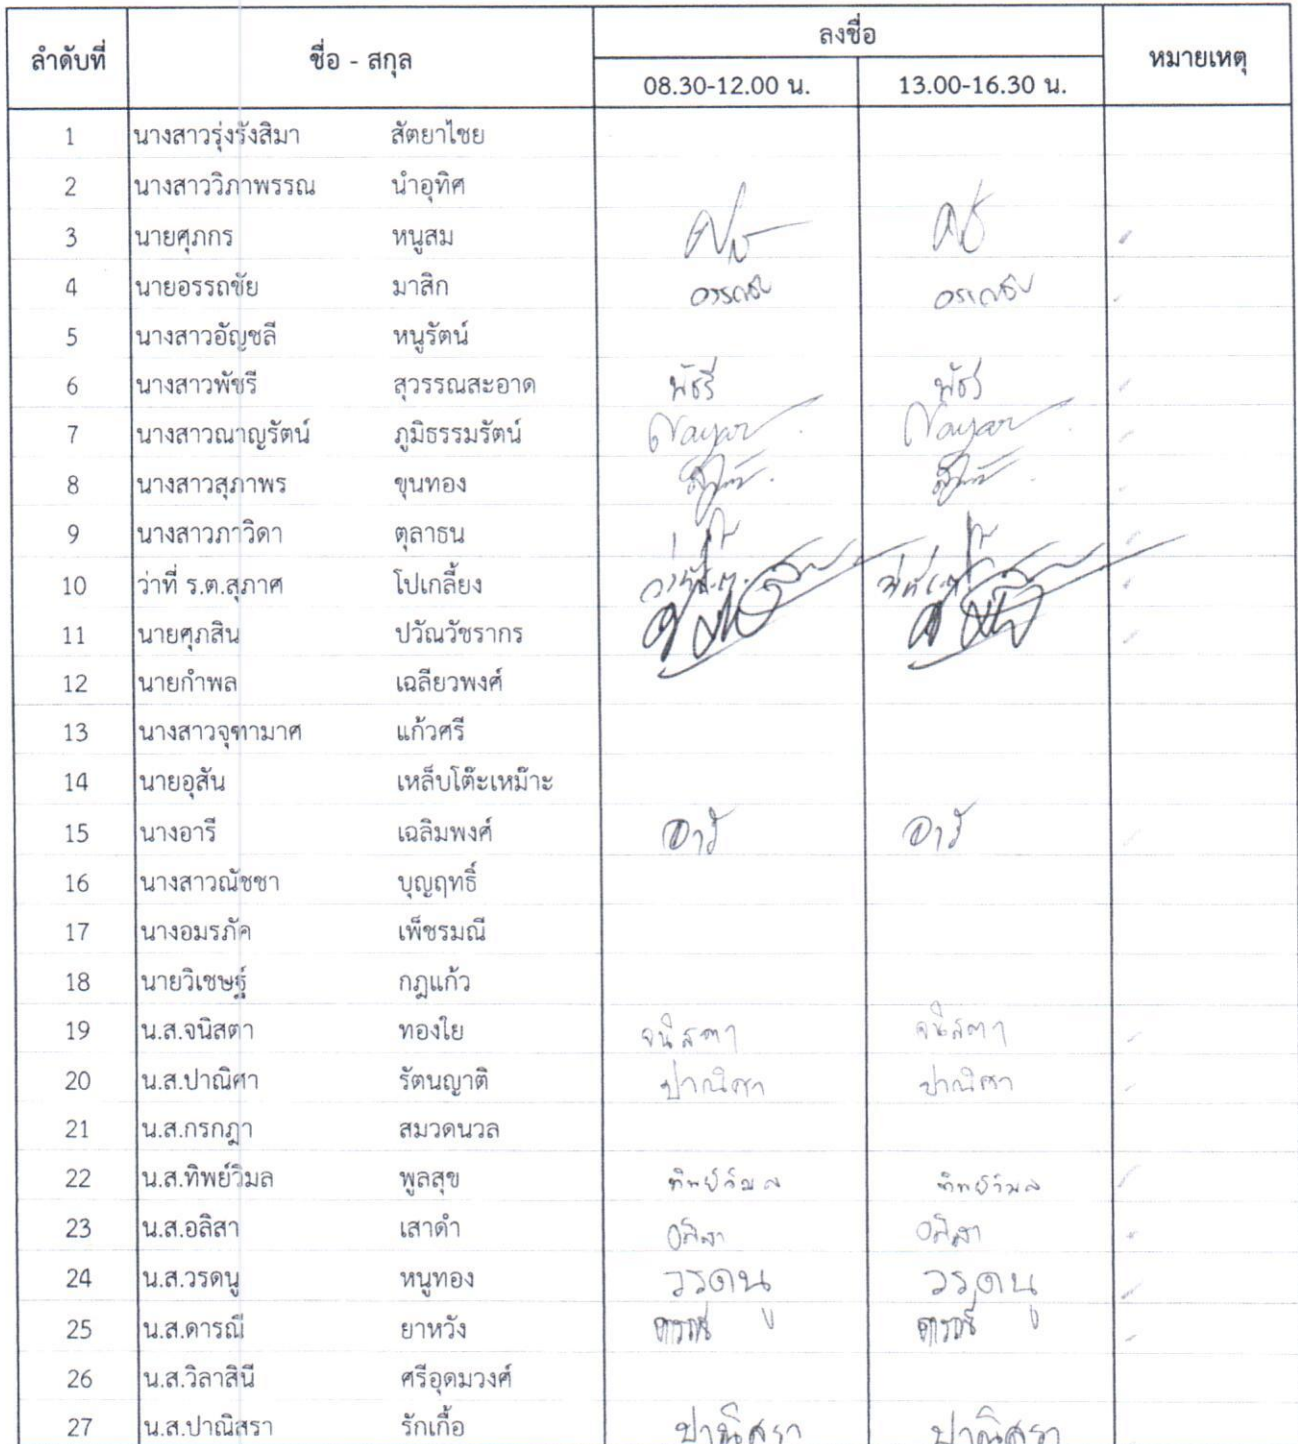 ลำดับที่ ชื่อ - สกุล ลงชื่อ หมายเหตุ
08.30-12.00 น. 13.00-16.30 น.
1 นางสาวรุ่งรังสิมา สัตยาไชย
2 นางสาววิภาพรรณ นำอุทิศ
3 นายศุภกร หนูสม
4 นายอรรถชัย มาสิก อรรถชัย อรรถชัย
5 นางสาวอัญชลี หนูรัตน์
6 นางสาวพัชรี สุวรรณสะอาด พัชรี พัชรี
7 นางสาวณาญรัตน์ ภูมิธรรมรัตน์
8 นางสาวสุภาพร ขุนทอง
9 นางสาวภาวิดา ตุลาธน
10 ว่าที่ ร.ต.สุภาศ โปเกลี้ยง
11 นายศุภสิน ปวัณวัชรากร
12 นายกำพล เฉลียวพงศ์
13 นางสาวจุฑามาศ แก้วศรี
14 นายอุสัน เหล็บโต๊ะเหม๊าะ
15 นางอารี เฉลิมพงศ์ อารี อารี
16 นางสาวณัชชา บุญฤทธิ์
17 นางอมรภัค เพ็ชรมณี
18 นายวิเชษฐ์ กฎแก้ว
19 น.ส.จนิสตา ทองใย จนิสตา จนิสตา
20 น.ส.ปาณิศา รัตนญาติ ปาณิศา ปาณิศา
21 น.ส.กรกฎา สมวดนวล
22 น.ส.ทิพย์วิมล พูลสุข ทิพย์วิมล ทิพย์วิมล
23 น.ส.อลิสา เสาดำ อลิสา อลิสา
24 น.ส.วรดนู หนูทอง วรดนู วรดนู
25 น.ส.ดารณี ยาหวัง ดารณี ดารณี
26 น.ส.วิลาสินี ศรีอุดมวงศ์
27 น.ส.ปาณิสรา รักเกื้อ ปาณิสรา ปาณิสรา